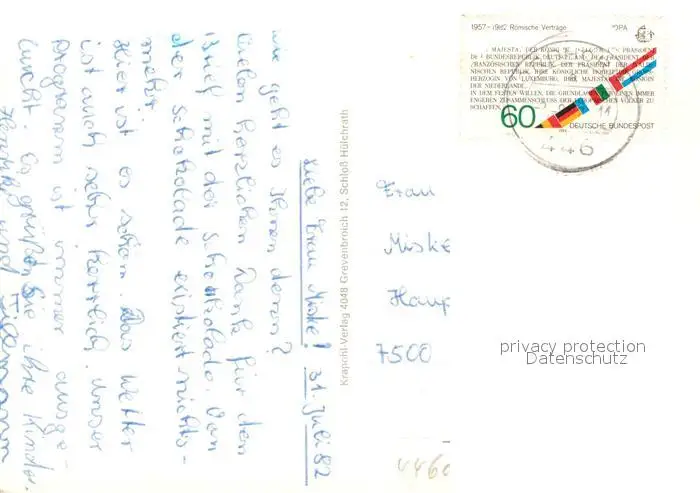 Liebe Frau Miske! 31. Juli 82
wie geht es Ihnen denn?
vielen herzlichen Dank für den
Brief mit der Schokolade. Von
der Schokolade existiert nichts
mehr
Hier ist es schön. Das Wetter
ist auch sehr herrlich. Unser
Programm ist immer ausge-
bucht. Es grüßen Sie ihre Kinder
und
Krapohl-Verlag 4048 Grevenbroich 12, Schloß Hülchrath
1957-1982 Römische Verträge
MAJESTÄT DER KÖNIG PRÄSIDENT
BUNDESREPUBLIK DEUTSCHLAND, DER PRÄSIDENT DER
FRANZÖSISCHEN REPUBLIK, DER PRÄSIDENT DER ITALIE-
NISCHEN REPUBLIK, IHRE KÖNIGLICHE HOHEIT DIE GROSS-
HERZOGIN VON LUXEMBURG, IHRE MAJESTÄT DIE KÖNIGIN
DER NIEDERLANDE,
IN DEM FESTEN WILLEN, DIE GRUNDLAGEN EINEN IMMER
ENGEREN ZUSAMMENSCHLUSS DER EUROPÄISCHEN VÖLKER ZU
SCHAFFEN
60 DEUTSCHE BUNDESPOST
11
446
Frau
Miske
Haup
7500
privacy protection
Datenschutz
446